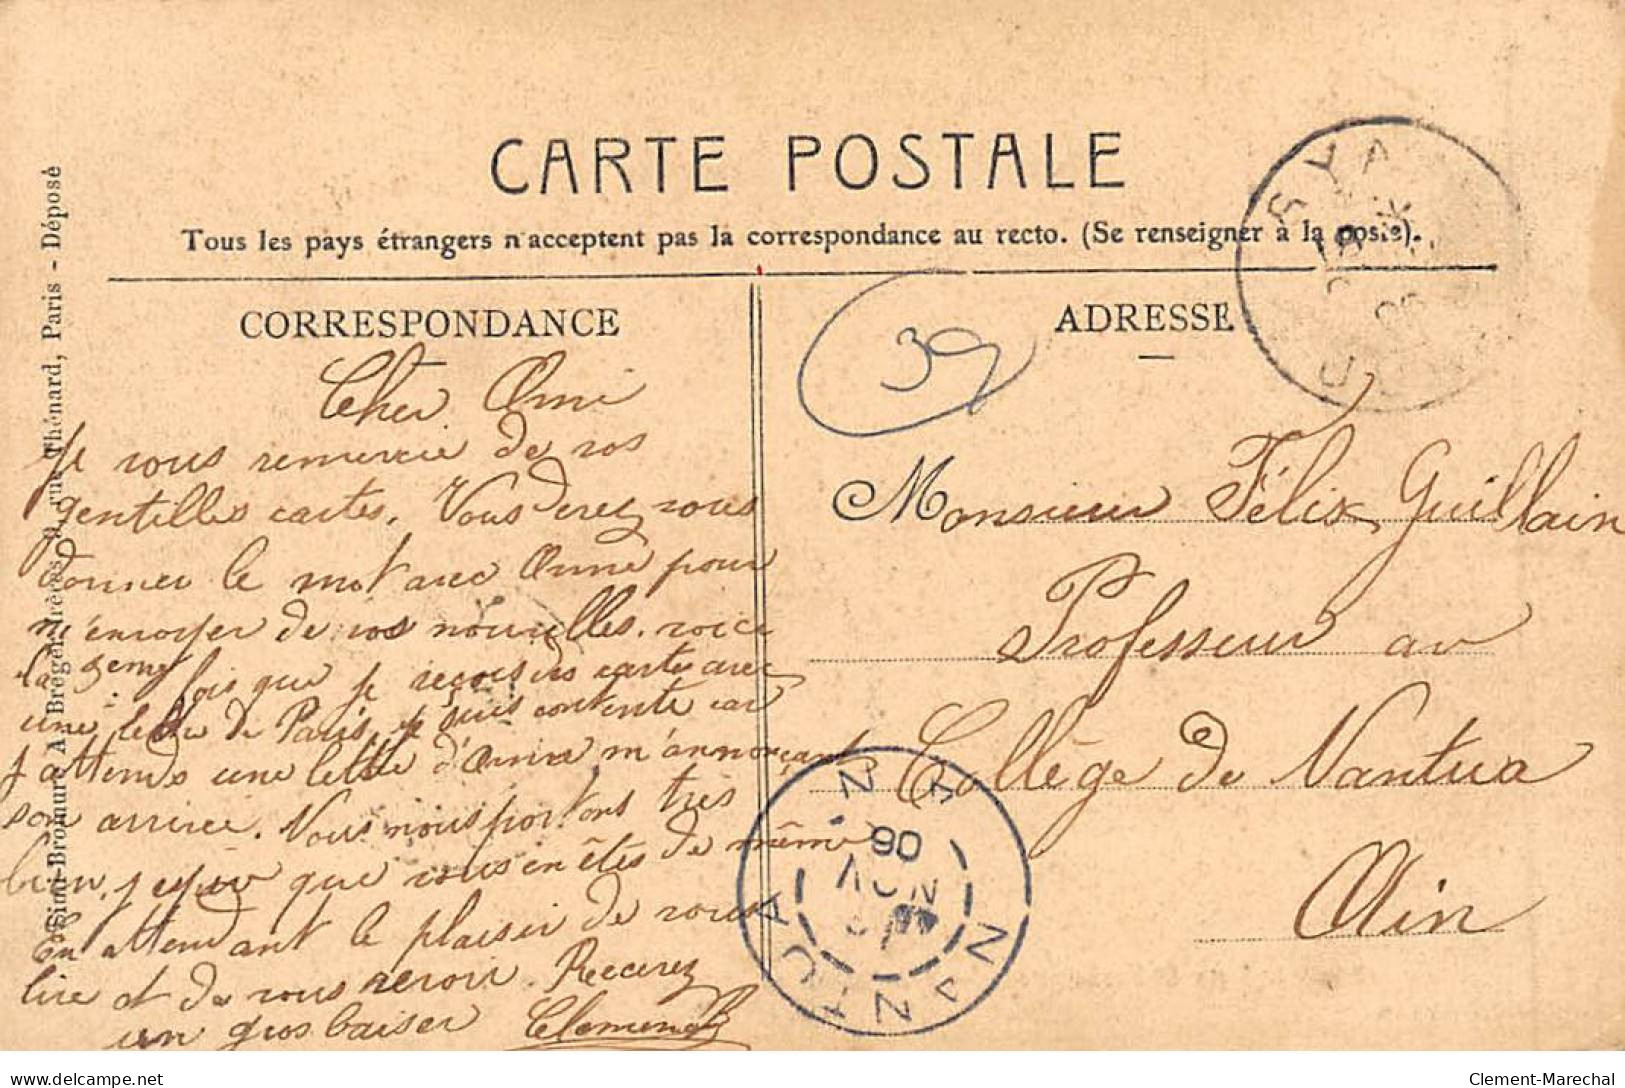 CARTE POSTALE
Tous les pays étrangers n'acceptent pas la correspondance au recto. (Se renseigner à la poste).
CORRESPONDANCE
ADRESSE
39
Cher Ami
Je vous remercie de vos
gentilles cartes. Vous vous
donner le mot avec pour
m'envoyer de vos nouvelles. voici
la 2eme fois que je reçois des cartes avec
une lettre de Paris, je suis contente car
j'attends une lettre m'annonçant
son arrivée. Nous nous portons très
bien, que vous en êtes de même
En attendant le plaisir de vous
lire et de vous revoir. Recevez
un gros baiser
Monsieur Félix Guillain
Professeur au
Collège de Nantua
Ain
NANTUA
NOV
06
AIN
Simi-Bromure A. Breger frères, rue Thénard, Paris - Déposé
delcampe.net
Clement-Marechal